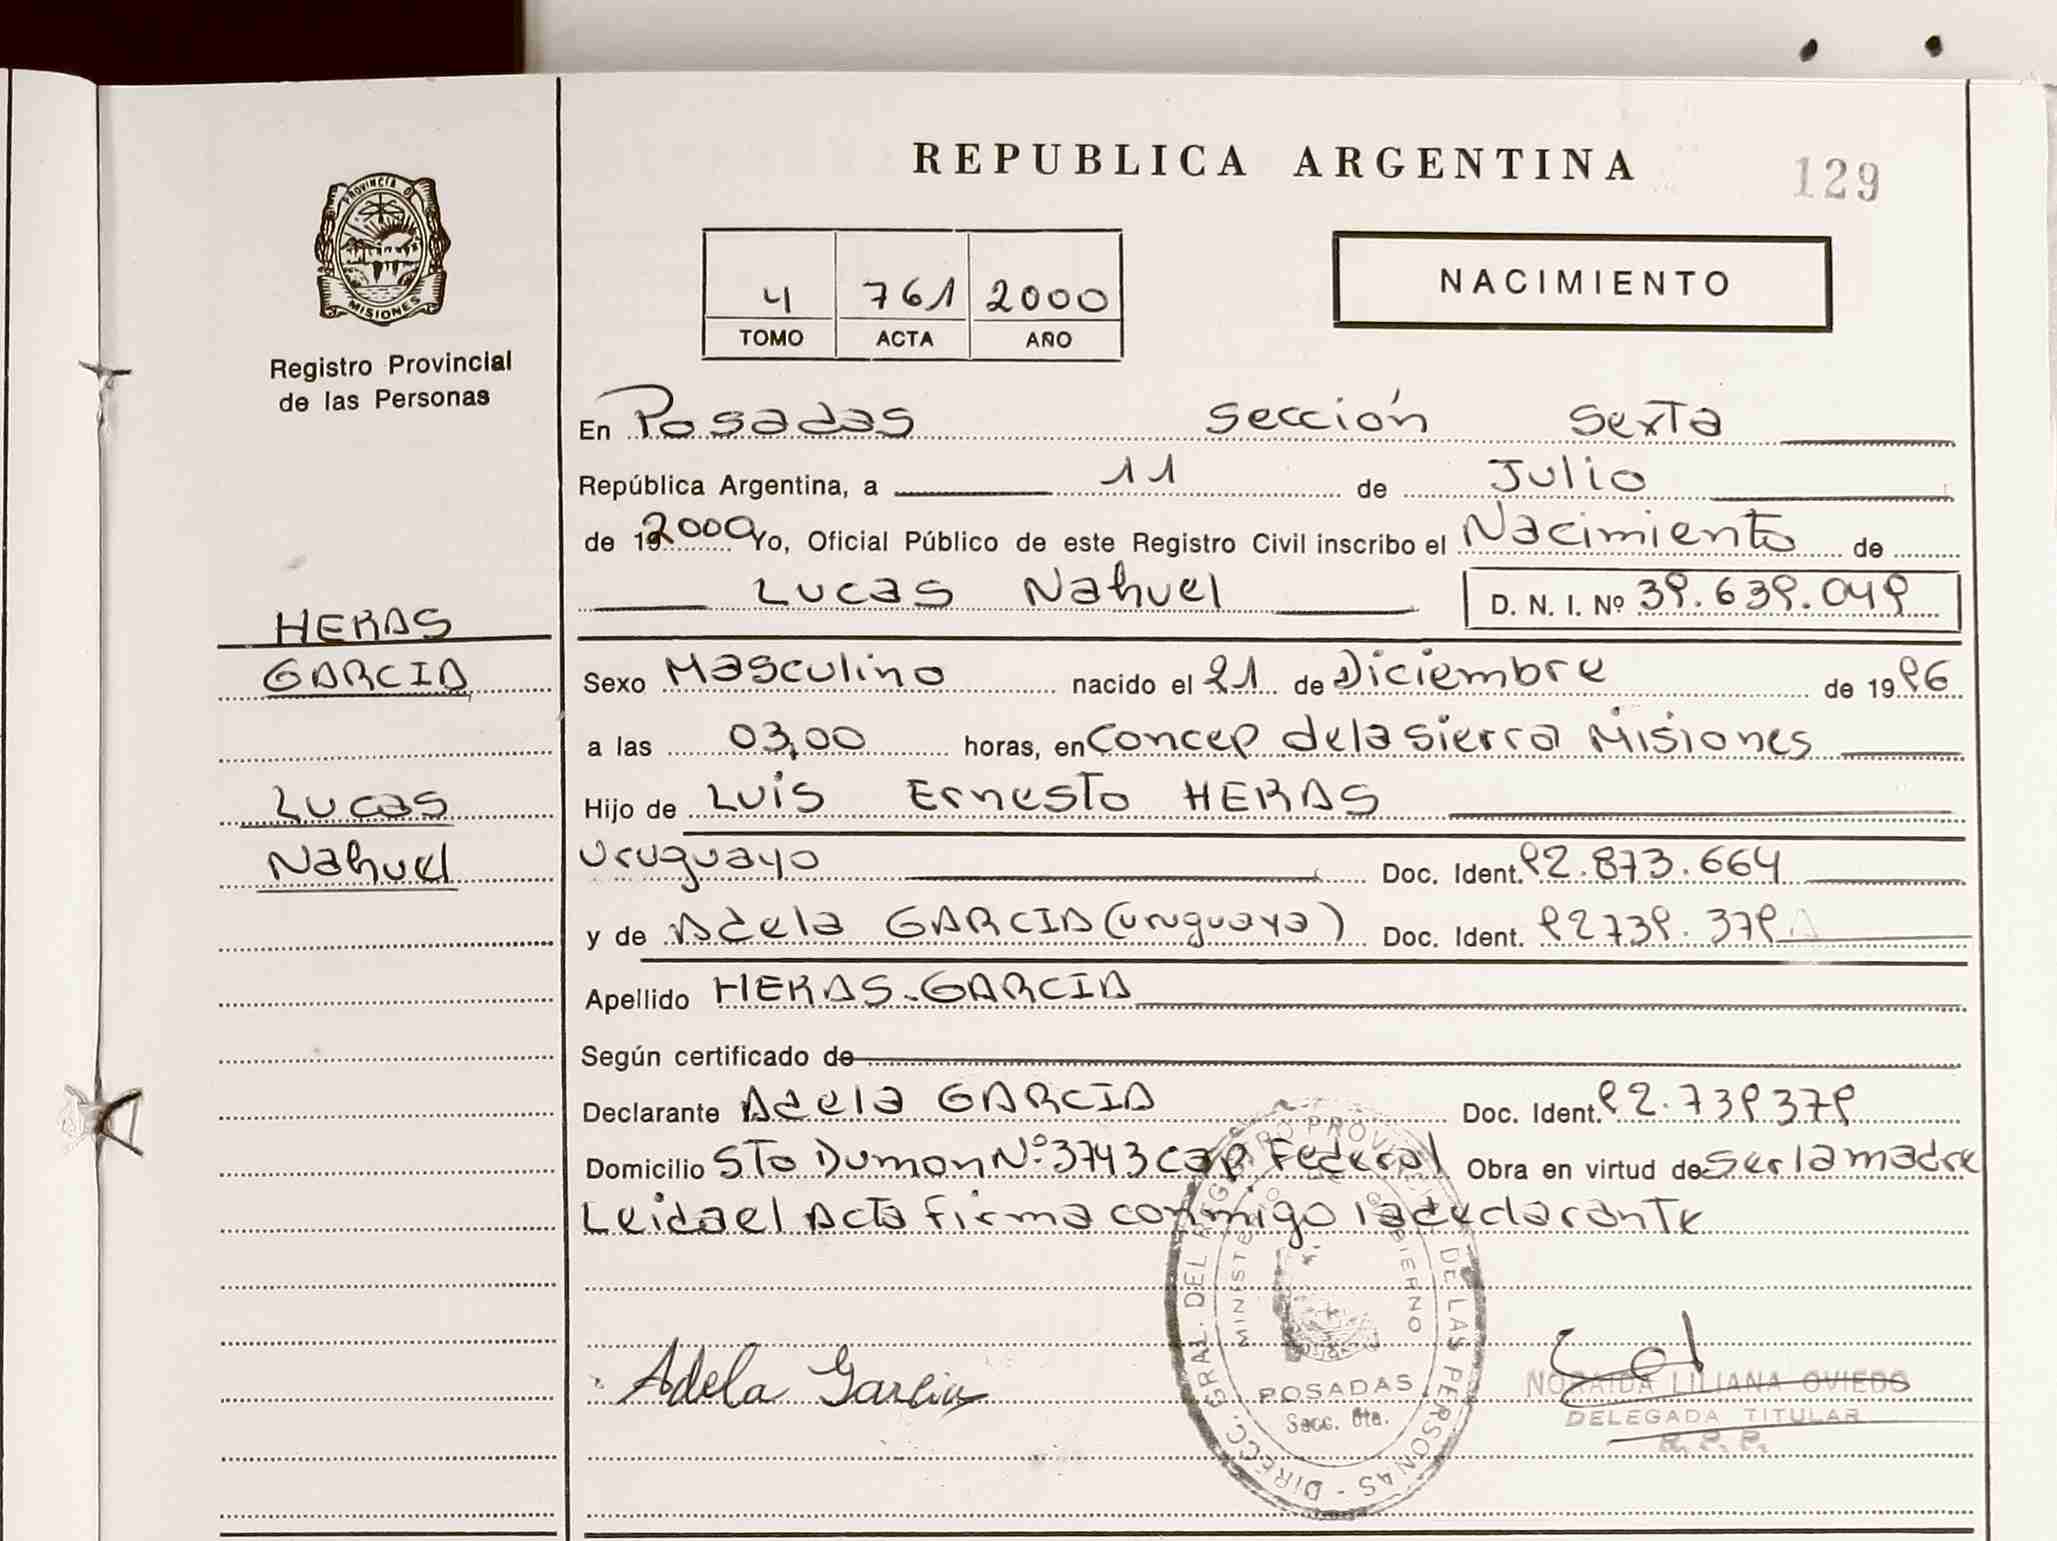 PROVINCIA DE
MISIONES
Registro Provincial
de las Personas
HERAS
GARCIA
Lucas
Nahuel
REPUBLICA ARGENTINA
129
4 761 2000
TOMO ACTA AÑO
NACIMIENTO
En Posadas Sección Sexta
República Argentina, a 11 de Julio
de 192000 Yo, Oficial Público de este Registro Civil inscribo el Nacimiento de
Lucas Nahuel D. N. I. Nº 39.639.049
Sexo Masculino nacido el 21 de Diciembre de 1996
a las 03,00 horas, en Concep de la Sierra Misiones
Hijo de Luis Ernesto HERAS
Uruguayo Doc. Ident. 92.873.664
y de Adela GARCIA (uruguaya) Doc. Ident. 92739.379
Apellido HERAS-GARCIA
Según certificado de
Declarante Adela GARCIA Doc. Ident. 92.739379
Domicilio Sto Dumon Nº 3743 Cap Federal Obra en virtud de ser la madre
Leida el Acta firma conmigo la declarante
Adela Garcia
DIRECC. GRAL. DEL REGISTRO PROVINCIAL DE LAS PERSONAS
MINISTERIO GOBIERNO
POSADAS
Secc. 6ta.
NORAIDA LILIANA OVIEDO
DELEGADA TITULAR
R. P. P.